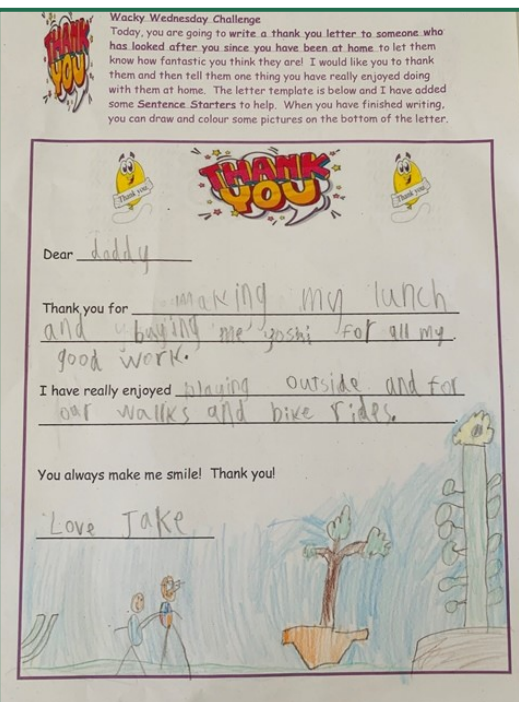 THANK YOU
Wacky Wednesday Challenge
Today, you are going to write a thank you letter to someone who
has looked after you since you have been at home to let them
know how fantastic you think they are! I would like you to thank
them and then tell them one thing you have really enjoyed doing
with them at home. The letter template is below and I have added
some Sentence Starters to help. When you have finished writing,
you can draw and colour some pictures on the bottom of the letter.
Thank you
THANK YOU
Thank you
Dear daddy
Thank you for making my lunch
and buying me yoshi for all my
good work.
I have really enjoyed playing outside and for
our wallks and bike rides.
You always make me smile! Thank you!
Love Jake